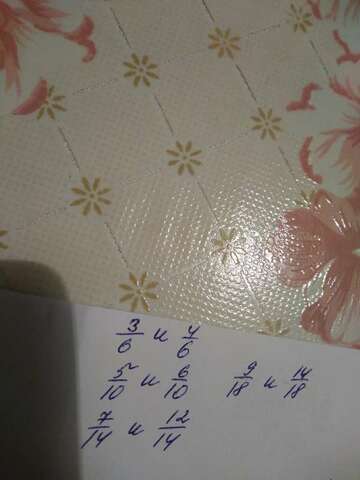 3/6 и 4/6
5/10 и 6/10 9/18 и 14/18
7/14 и 12/14